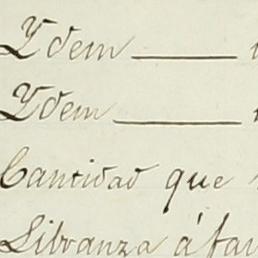 Ydem
Ydem
Cantidad que
Libranza á